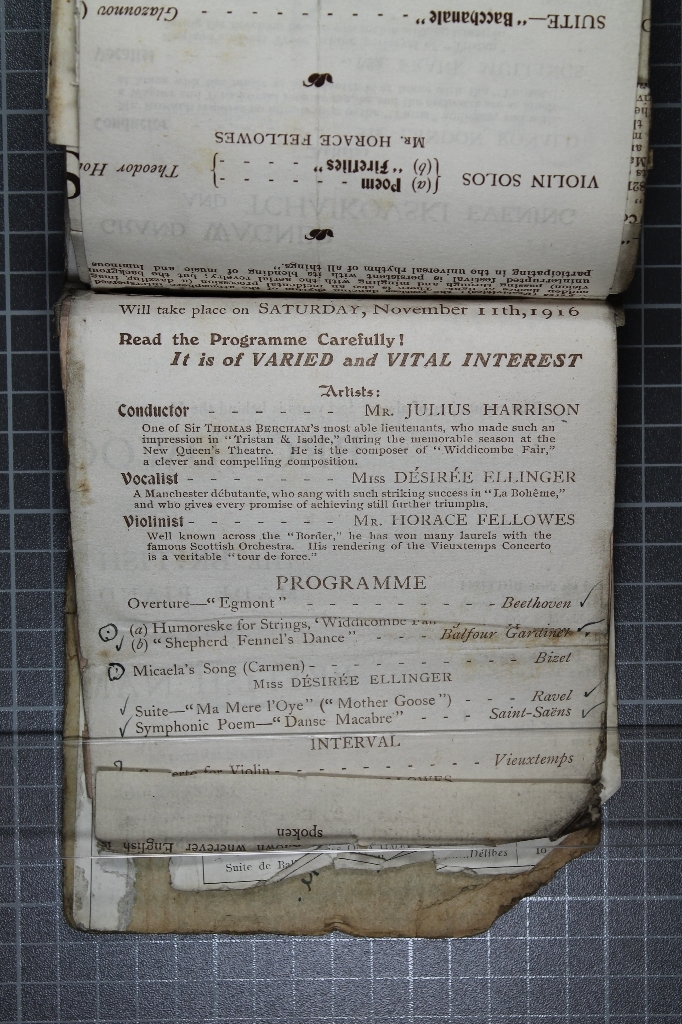 SUITE—"Bacchanale" - - - - - - - Glazounov (
VIOLIN SOLOS {(a) Poem - - - - - -} Theodor
{(b) "Fireflies" - - - -}
Mr. HORACE FELLOWES
uninterrupted festival is persistent with its blending of music and luminous
participating in the universal rhythm of all things.
Will take place on SATURDAY, November 11th, 1916
Read the Programme Carefully!
It is of VARIED and VITAL INTEREST
Artists:
Conductor - - - - - - Mr. JULIUS HARRISON
One of Sir THOMAS BEECHAM'S most able lieutenants, who made such an
impression in "Tristan & Isolde," during the memorable season at the
New Queen's Theatre. He is the composer of "Widdicombe Fair,"
a clever and compelling composition.
Vocalist - - - - - - - Miss DÉSIRÉE ELLINGER
A Manchester débutante, who sang with such striking success in "La Bohême,"
and who gives every promise of achieving still further triumphs.
Violinist - - - - - - - Mr. HORACE FELLOWES
Well known across the "Border," he has won many laurels with the
famous Scottish Orchestra. His rendering of the Vieuxtemps Concerto
is a veritable "tour de force."
PROGRAMME
Overture—"Egmont" - - - - - - - - - Beethoven ✓
(a) Humoreske for Strings, 'Widdicombe
✓ (b) "Shepherd Fennel's Dance" - - - - Balfour Gardiner ✓
Micaela's Song (Carmen) - - - - - - - - Bizet
Miss DÉSIRÉE ELLINGER
✓ Suite—"Ma Mere l'Oye" ("Mother Goose") - - - Ravel ✓
✓ Symphonic Poem—"Danse Macabre" - - - Saint-Saëns ✓
INTERVAL
for Violin - - - - - - - - - Vieuxtemps
spoken
wherever English is
Suite de Délibes 10